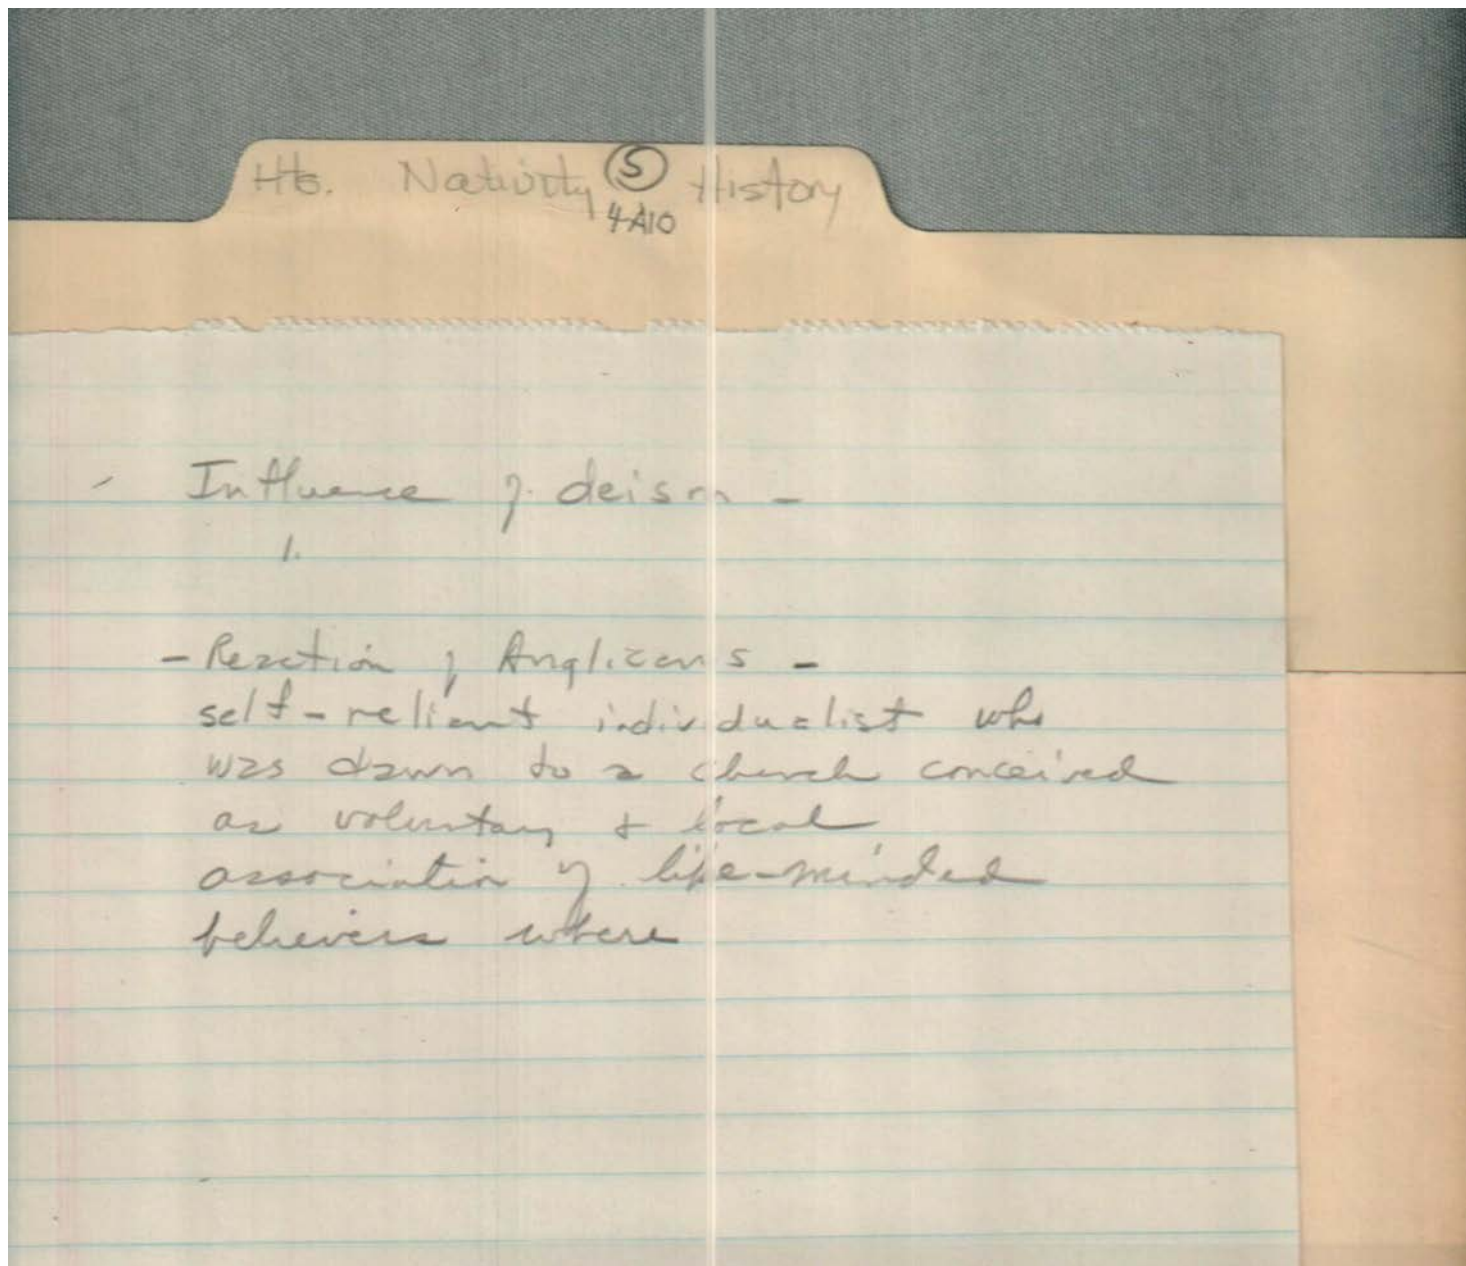 Hts. Nativity ⑤ History
4-A10
- Influence of deism -
1.
- Reaction of Anglicans -
self-reliant individualist who
was dawn to a church conceived
as voluntary & local
association of like-minded
believers where